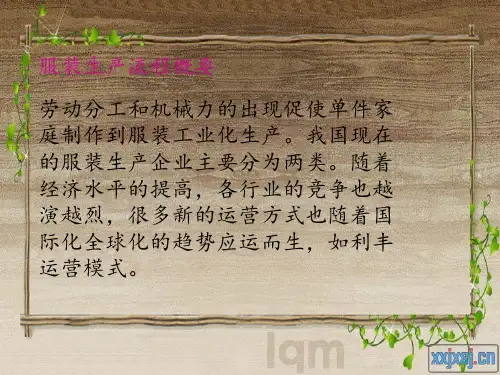 服装生产流程概要
劳动分工和机械力的出现促使单件家
庭制作到服装工业化生产。我国现在
的服装生产企业主要分为两类。随着
经济水平的提高，各行业的竞争也越
演越烈，很多新的运营方式也随着国
际化全球化的趋势应运而生，如利丰
运营模式。
lqm
xxjxsj.cn